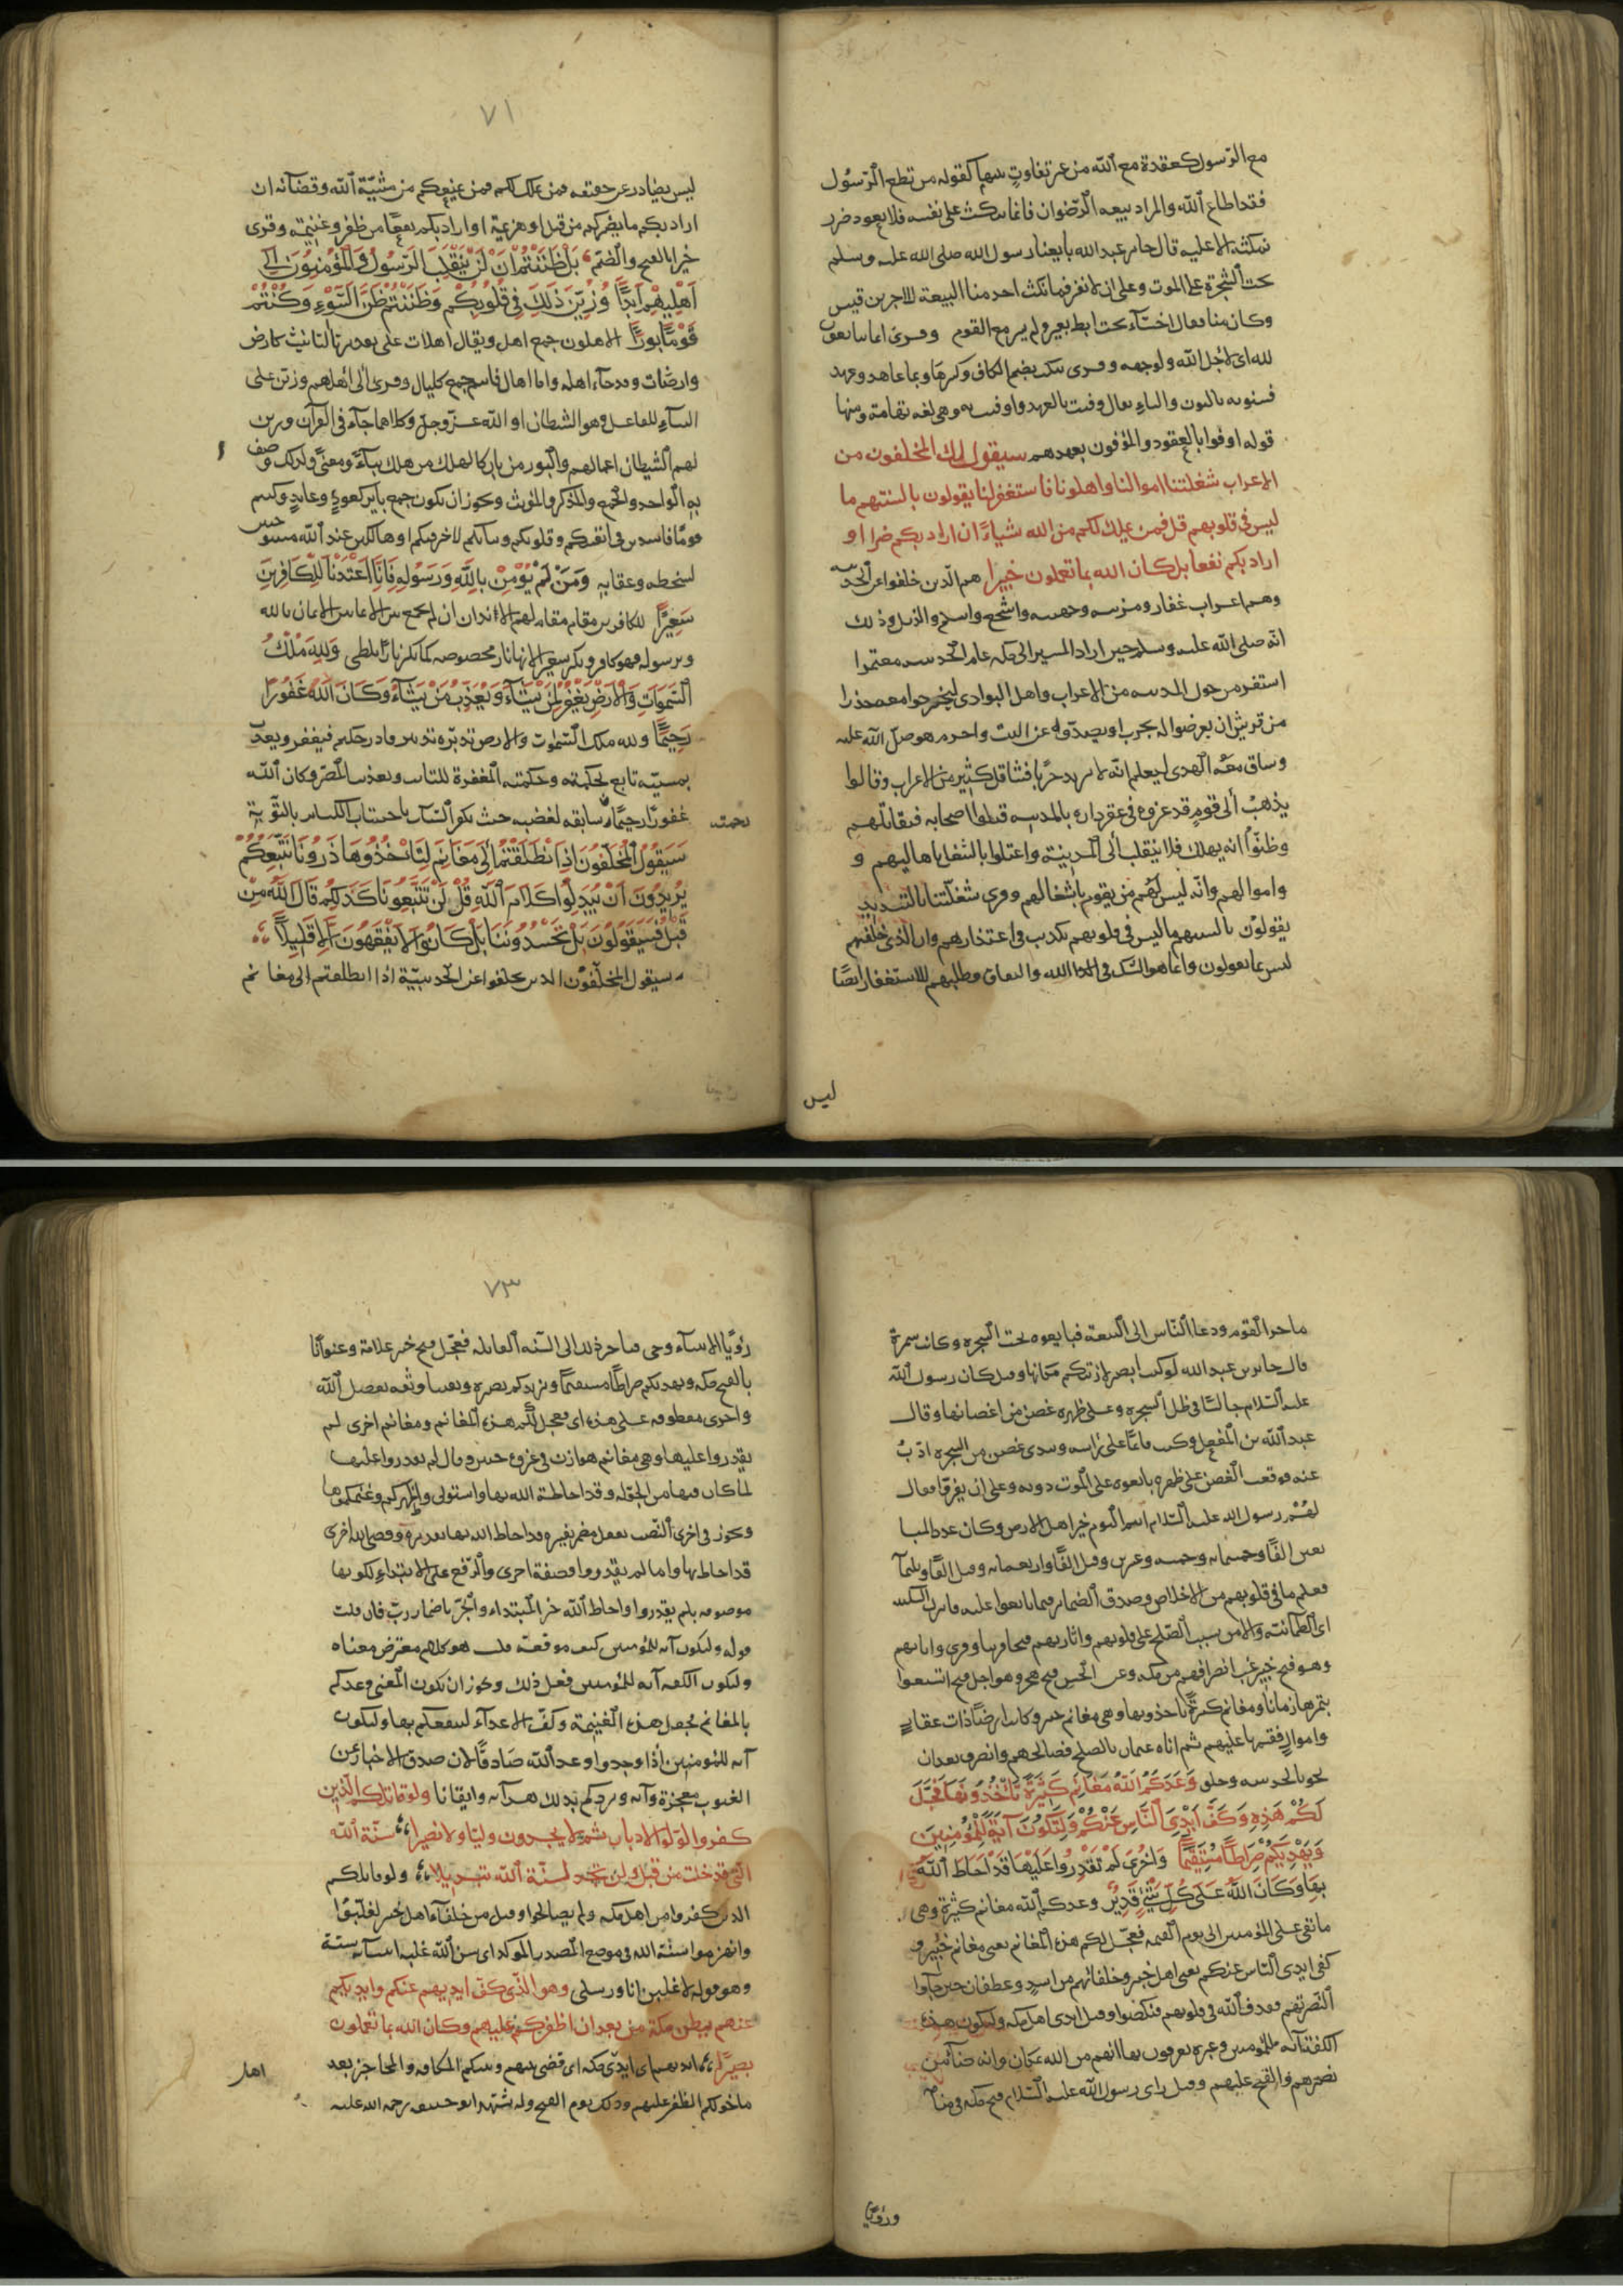 مع الرسول كعقده مع الله من غير تفاوت بينهما كقوله من يطع الرسول
فقد اطاع الله والمراد بيعة الرضوان فانما ينكث على نفسه فلا يعود ضرر
نكثه الا عليه قال جابر بن عبد الله بايعنا رسول الله صلى الله عليه وسلم
تحت الشجرة على الموت وعلى ان لا نفر فما نكث احد منا البيعة الا جد بن قيس
وكان منافقا اختبأ تحت ابط بعيره ولم يسر مع القوم وقرئ انما يبايعون
لله اى لاجل الله ولوجهه وقرئ ينكث بضم الكاف وكسرها وبما عاهد وعهد
فسنؤتيه بالنون والياء يقال وفيت بالعهد واوفيت به وهى لغة تهامة ومنها
قوله اوفوا بالعقود والموفون بعهدهم سيقول لك المخلفون من
الاعراب شغلتنا اموالنا واهلونا فاستغفر لنا يقولون بالسنتهم ما
ليس فى قلوبهم قل فمن يملك لكم من الله شياء ان اراد بكم ضرا او
اراد بكم نفعا بل كان الله بما تعملون خبيرا هم الذين خلفوا عن الحديبية
وهم اعراب غفار ومزينة وجهينة واشجع واسلم والديل وذلك
انه صلى الله عليه وسلم حين اراد المسير الى مكة عام الحديبية معتمرا
استنفر من حول المدينة من الاعراب واهل البوادى ليخرجوا معه حذرا
من قريش ان يعرضوا له بحرب او يصدوه عن البيت واحرم هو صلى الله عليه
وساق معه الهدى ليعلم انه لا يريد حربا فتثاقل كثير من الاعراب وقالوا
يذهب الى قوم قد غزوه فى عقر داره بالمدينة وقتلوا اصحابه فيقاتلهم
وظنوا انه يهلك فلا ينقلب الى المدينة واعتلوا بالشغل باهاليهم و
واموالهم وانه ليس لهم من يقوم باشغالهم وقرئ شغلتنا بالتشديد
يقولون بالسنتهم ما ليس فى قلوبهم تكذيب فى اعتذارهم وان الذى خلفهم
ليس بما يقولون وانما هو الشك فى الله والنفاق وطلبهم للاستغفار ايضا
ليس
٧١
ليس بصادر عن حقيقة فمن يملك لكم فمن يمنعكم من مشيئة الله وقضائه ان
اراد بكم ما يضركم من قتل او هزيمة او اراد بكم نفعا من ظفر وغنيمة وقرئ
ضرا بالفتح والضم بل ظننتم ان لن ينقلب الرسول والمؤمنون الى
اهليهم ابدا وزين ذلك فى قلوبكم وظننتم ظن السوء وكنتم
قوما بورا الاهلون جمع اهل ويقال اهلات على تقدير تاء التانيث كارض
وارضات وقد جاء اهله واما اهال فاسم جمع كليال وقرئ الى اهلهم وزين على
البناء للفاعل وهو الشيطان او الله عز وجل وكلاهما جاء فى القرآن وزين
لهم الشيطان اعمالهم والبور من بار كالهلك من هلك بناء ومعنى ولذلك وصف
به الواحد والجمع والمذكر والمؤنث ويجوز ان يكون جمع بائر كعوذ وعايد وكنتم
قوما فاسدين فى انفسكم وقلوبكم ونياتكم لا خير فيكم او هالكين عند الله مستوجبين
لسخطه وعقابه ومن لم يؤمن بالله ورسوله فانا اعتدنا للكافرين
سعيرا للكافرين مقام مقام لهم للايذان ان لم يجمع بين الايمانين الايمان بالله
وبرسوله فهو كافر ونكر سعيرا لانها نار مخصوصة كما نكر نارا تلظى ولله ملك
السموات والارض يغفر لمن يشاء ويعذب من يشاء وكان الله غفورا
رحيما ولله ملك السموات والارض تدبره تدبير قادر حكيم فيغفر ويعذب
بمشيئته تابع لحكمته وحكمته المغفرة للتائب وتعذيب المصر وكان الله
غفورا رحيما سابقه لغضبه حيث يكفر السيات باجتناب الكبائر بالتوبة
رحمته
سيقول المخلفون اذا انطلقتم الى مغانم لتاخذوها ذرونا نتبعكم
يريدون ان يبدلوا كلام الله قل لن تتبعونا كذلكم قال الله من
قبل فسيقولون بل تحسدوننا بل كانوا لا يفقهون الا قليلا
سيقول المخلفون الذين تخلفوا عن الحديبية اذا انطلقتم الى مغانم
ودعا الناس الى البيعة فبايعوه تحت الشجرة وكانت سمرة
قال جابر بن عبد الله لو كنت ابصر لاريتكم مكانها وقيل كان رسول الله
عليه السلام جالسا فى ظل الشجرة وعلى ظهره غصن من اغصانها وقال
عبد الله بن المغفل وكنت قائما على راسه وبيدى غصن من الشجرة اذب
عنه فرفعت الغصن عن ظهره بايعوه على الموت دونه وعلى ان لا يفروا فقال
لهم رسول الله عليه السلام انتم اليوم خير اهل الارض وكان عدد المبا
يعين الفا وخمسمائة وخمسة وعشرين وقيل الفا واربعمائة وقيل الفا وثلثمائة
فعلم ما فى قلوبهم من الاخلاص وصدق الضمائر فيما بايعوا عليه فانزل السكينة
اى الطمانينة والامن بسبب الصلح على قلوبهم واثابهم فتحا قريبا وقرئ واتاهم
وهو فتح خيبر غب انصرافهم من مكة وعن الحسن فتح هجر وهو اجل فتح اتسعوا
بثمرها زمانا ومغانم كثيرة ياخذونها وهى مغانم خيبر وكانت ارضا ذات عقار
واموال فقسمها عليهم ثم اتاه عثمان بالصلح فصالحهم وانصرف بعد ان
نحر بالحديبية وحلق وعدكم الله مغانم كثيرة تاخذونها فعجل
لكم هذه وكف ايدى الناس عنكم ولتكون آية للمؤمنين
ويهديكم صراطا مستقيما واخرى لم تقدروا عليها قد احاط الله
بها وكان الله على كل شئ قدير وعدكم الله مغانم كثيرة وهى
ما تفئ على المؤمنين الى يوم القيمة فعجل لكم هذه المغانم يعنى مغانم خيبر و
كف ايدى الناس عنكم يعنى اهل خيبر وحلفائهم من اسد وغطفان حين جاوا
لنصرتهم فقذف الله فى قلوبهم فنكصوا وقيل ايدى اهل مكة ولتكون هذه
الكفة آية للمؤمنين وعبرة يعرفون بها انهم من الله بمكان وانه ضامن
نصرهم والفتح عليهم وقيل راى رسول الله عليه السلام فتح مكة فى منامه
ورؤيا
٧٣
رؤيا الانبياء وحى فتاخر ذلك الى السنة القابلة فجعل فتح خيبر علامة وعنوانا
بالفتح مكة ويهديكم صراطا مستقيما ويزيدكم بصيرة ويقينا وثقة بفضل الله
واخرى معطوفة على هذه اى فعجل لكم هذه المغانم ومغانم اخرى لم
يقدروا عليها وهى مغانم هوازن فى غزوة حنين وقال لم يقدروا عليها
لما كان فيها من الجولة وقد احاط الله بها واستولى واظهركم وغنمكموها
ويجوز فى اخرى النصب بفعل مضمر يفسره قد احاط الله بها تقديره وقضى الله اخرى
قد احاط بها واما لم يقدروا فصفة اخرى والرفع على الابتداء لكونها
موصوفة بلم يقدروا واحاط الله خبر المبتداء والجر باضمار رب فان قلت
قوله ولتكون آية للمؤمنين كيف موقعه قلت هو كلام معترض معناه
ولتكون الكفة آية للمؤمنين فعل ذلك ويجوز ان يكون المعنى وعدكم
بالمغانم فجعل هذه الغنيمة وكف الاعداء لينفعكم بها ولتكون
آية للمؤمنين اذا وجدوا وعد الله صادقا لان صدق الاخبار عن
الغيوب معجزة وآية ويزيدكم بذلك هداية وايقانا ولو قاتلكم الذين
كفروا لولوا الادبار ثم لا يجدون وليا ولا نصيرا سنة الله
التى قد خلت من قبل ولن تجد لسنة الله تبديلا ولو قاتلكم
الذين كفروا من اهل مكة ولم يصالحوا وقيل من حلفاء اهل خيبر لغلبوا
وانهزموا سنة الله فى موضع المصدر الموكد اى سن الله غلبة انبيائه سنة
وهو قوله لاغلبن انا ورسلى وهو الذى كف ايديهم عنكم وايديكم
عنهم ببطن مكة من بعد ان اظفركم عليهم وكان الله بما تعملون
بصيرا ايديهم اى ايدى مكة اى قضى بينهم وبينكم المكافة والمحاجزة بعد
اهل
ما خولكم الظفر عليهم وذلك يوم الفتح وله شهد ابو حنيفة رحمة الله عليه